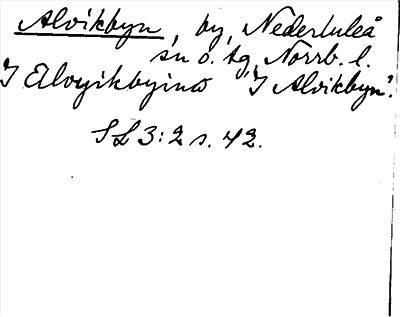 Alvikbyn, by, Nederluleå
sn o. tg, Norrb. l.
I Elvyikbyinο "I Alvikbyn".
SL 3:2 s. 42.